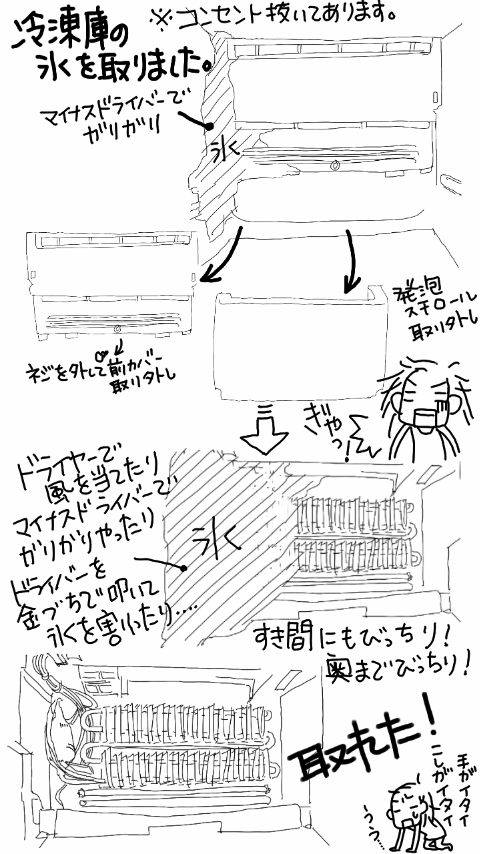 ※コンセント抜いてあります。
冷凍庫の
氷を取りました。
マイナスドライバーで
ガリガリ
氷
発泡
スチロール
取り外し
ネジを外して前カバー
取り外し
ぎゃっ!
ドライヤーで
風を当てたり
マイナスドライバーで
ガリガリやったり
ドライバーを
金づちで叩いて
氷を割ったり....
氷
すき間にもびっちり!
奥までびっちり!
取れた!
手がイタイ
こしがイタイ
うぅ...